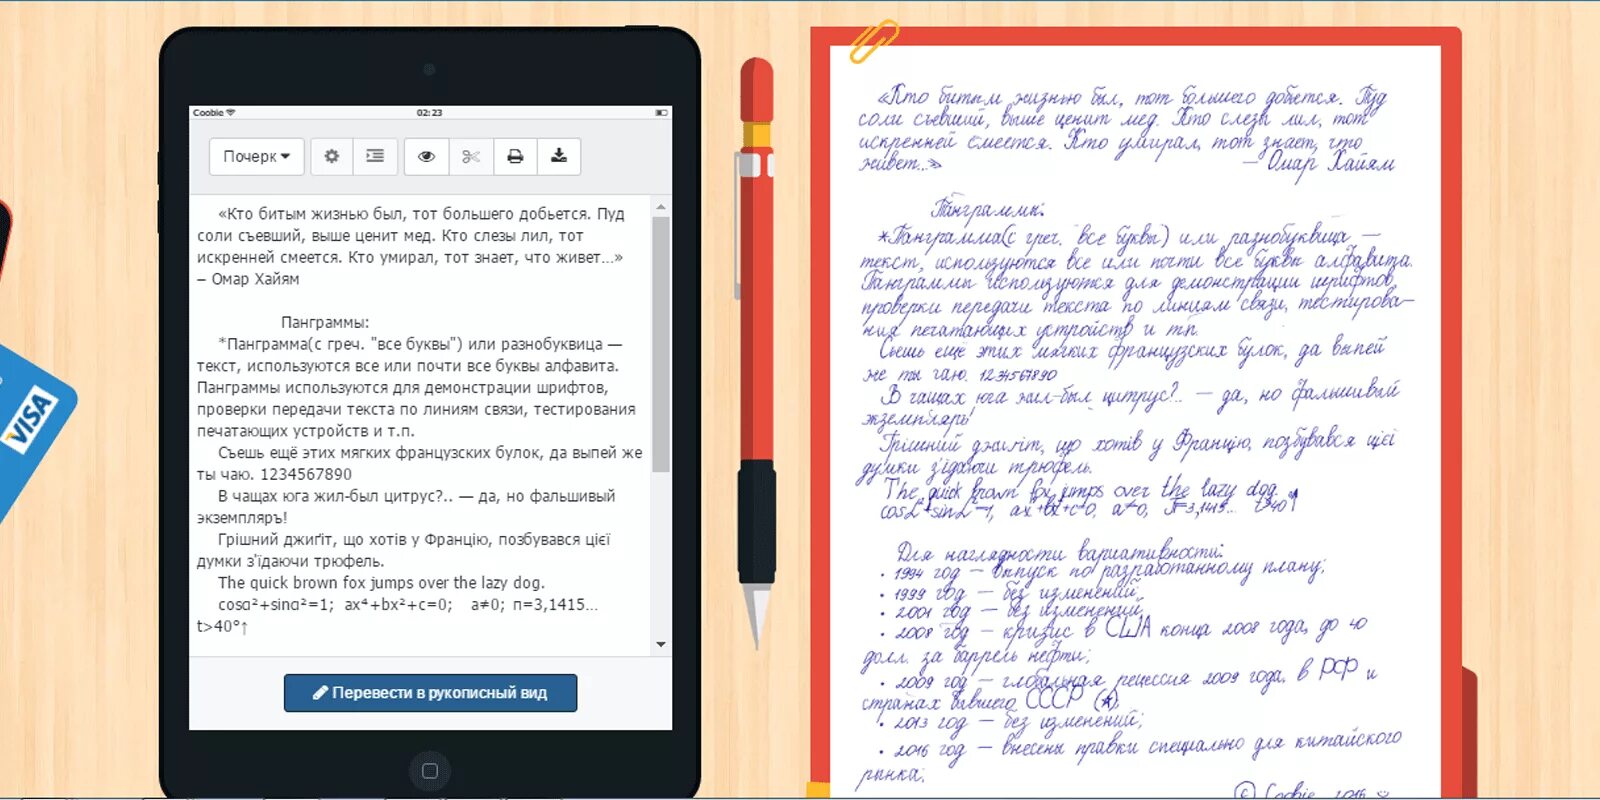 VISA
Coobie
02:23
Почерк
«Кто битым жизнью был, тот большего добьется. Пуд
соли съевший, выше ценит мед. Кто слезы лил, тот
искренней смеется. Кто умирал, тот знает, что живет...»
– Омар Хайям
Панграммы:
*Панграмма(с греч. "все буквы") или разнобуквица —
текст, используются все или почти все буквы алфавита.
Панграммы используются для демонстрации шрифтов,
проверки передачи текста по линиям связи, тестирования
печатающих устройств и т.п.
Съешь ещё этих мягких французских булок, да выпей же
ты чаю. 1234567890
В чащах юга жил-был цитрус?.. — да, но фальшивый
экземпляръ!
Грішний джиґіт, що хотів у Францію, позбувався цієї
думки з'їдаючи трюфель.
The quick brown fox jumps over the lazy dog.
cosα²+sinα²=1; ax⁴+bx²+c=0; a≠0; π=3,1415...
t>40°↑
Перевести в рукописный вид
«Кто битым жизнью был, тот большего добьется. Пуд
соли съевший, выше ценит мед. Кто слезы лил, тот
искренней смеется. Кто умирал, тот знает, что
живет...»
— Омар Хайям
Панграммы:
*Панграмма(с греч. "все буквы") или разнобуквица —
текст, используются все или почти все буквы алфавита.
Панграммы используются для демонстрации шрифтов,
проверки передачи текста по линиям связи, тестирова-
ния печатающих устройств и т.п.
Съешь ещё этих мягких французских булок, да выпей
же ты чаю. 1234567890
В чащах юга жил-был цитрус?.. — да, но фальшивый
экземпляръ!
Грішний джиґіт, що хотів у Францію, позбувався цієї
думки з'їдаючи трюфель.
The quick brown fox jumps over the lazy dog.
cosα²+sinα²=1; ax⁴+bx²+c=0; a≠0; π=3,1415... t>40°↑
Для наглядности вариативности:
• 1994 год — выпуск по разработанному плану;
• 1999 год — без изменений;
• 2001 год — без изменений;
• 2008 год — кризис в США конца 2008 года, до 40
долл. за баррель нефти;
• 2009 год — глобальная рецессия 2009 года, в РФ и
странах бывшего СССР
• 2013 год — без изменений;
• 2016 год — внесены правки специально для китайского
рынка;
© Coobie 2016